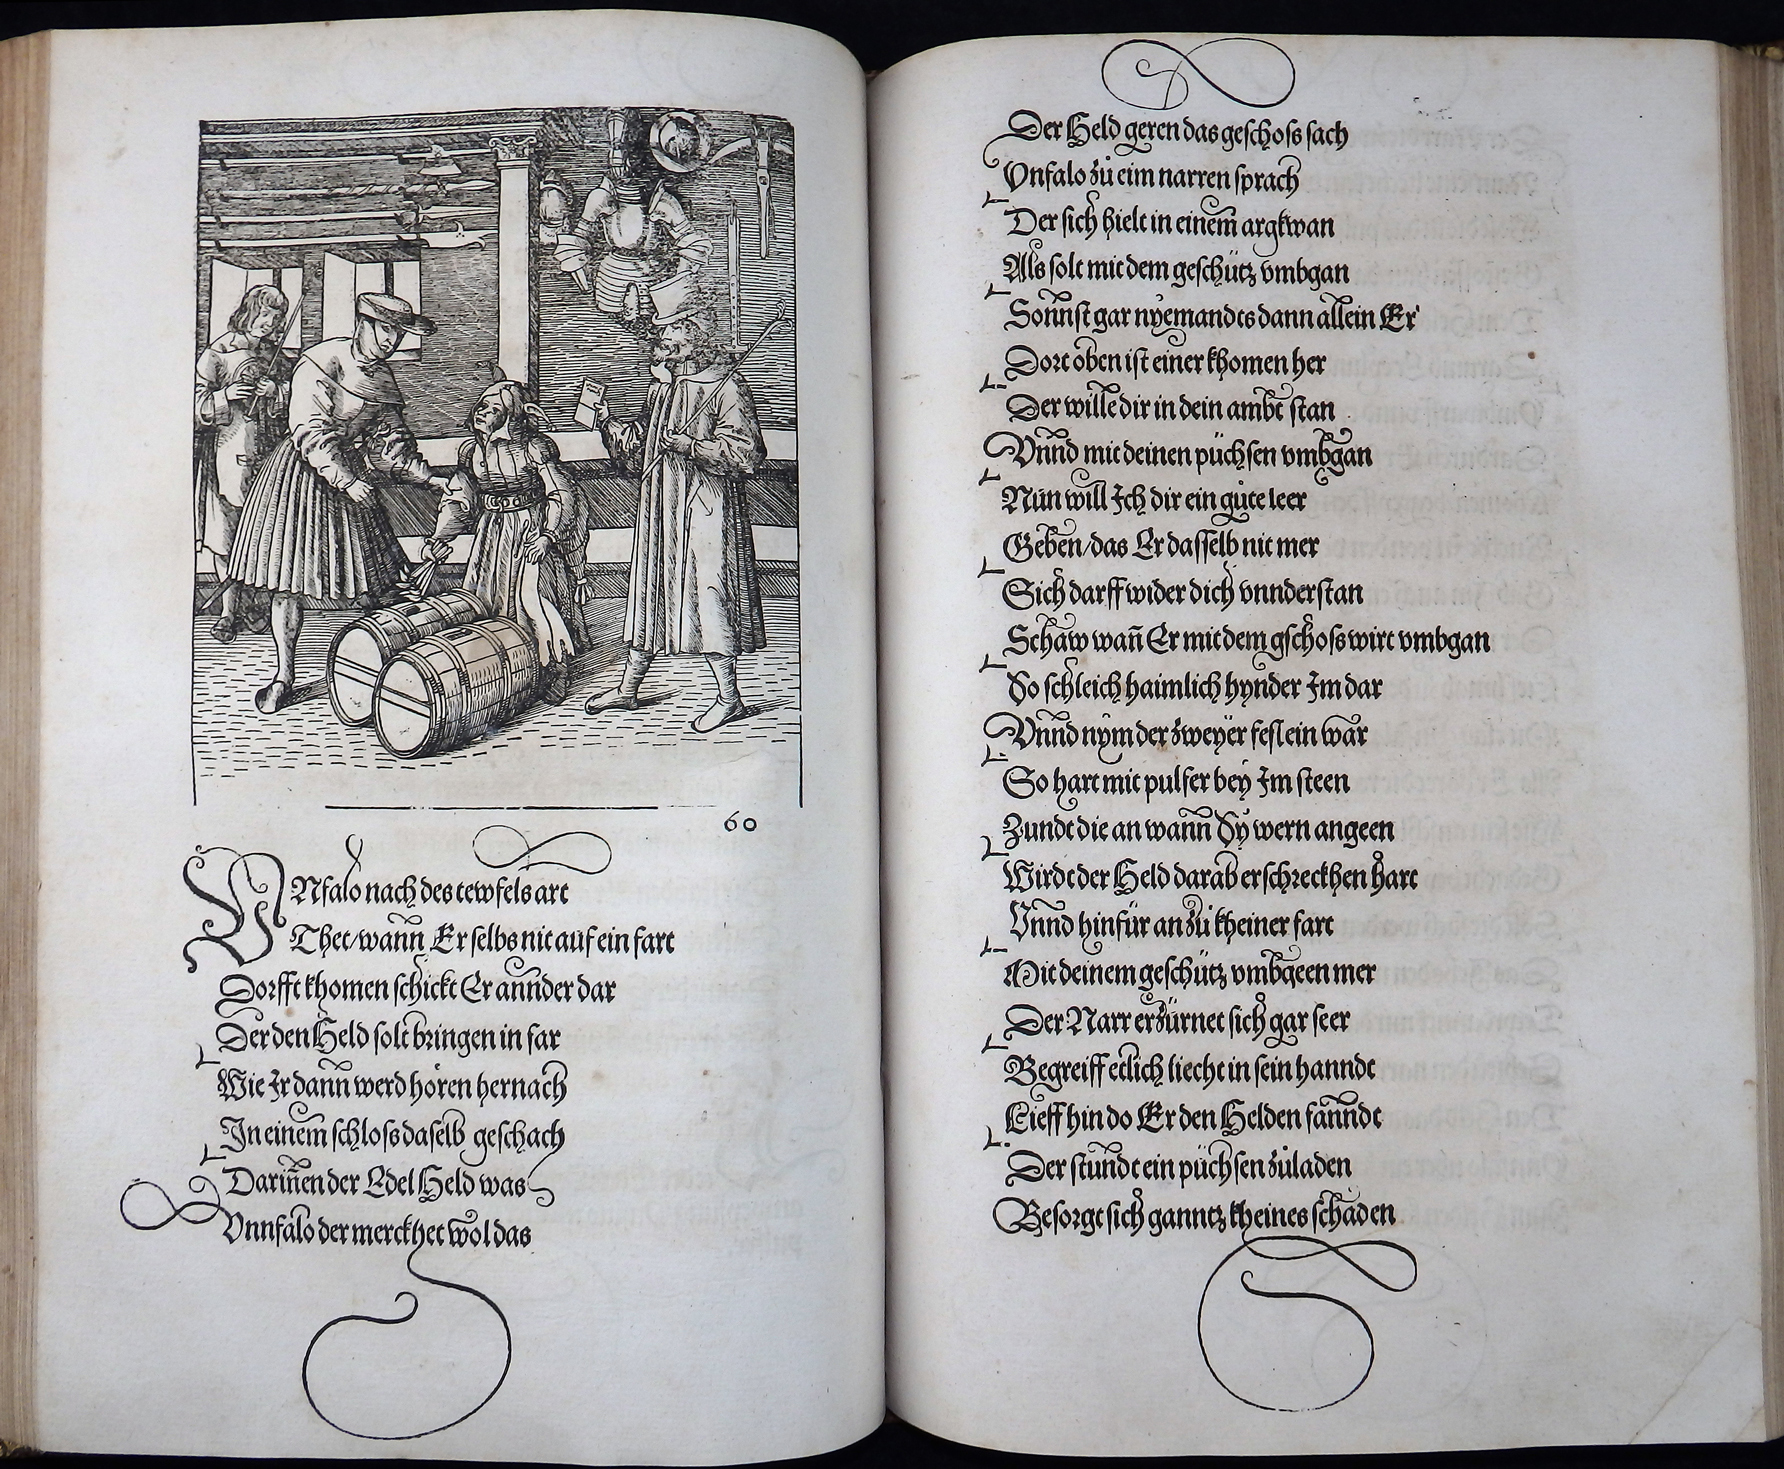 60
VNfalo nach des tewfels art
Thet/wann Er selbs nit auf ein fart
Dorfft khomen schickt Er annder dar
Der den Held solt bringen in far
Wie Ir dann werd hören hernach
In einem schloss daselb geschach
Darinnen der Edel Held was
Vnnfalo der merckhet wol das
Der Held geren das geschoss sach
Vnfalo zů eim narren sprach
Der sich hielt in einem argkwan
Als solt mit dem geschütz vmbgan
Sonnst gar nyemandts dann allein Er
Dort oben ist einer khomen her
Der wille dir in dein ambt stan
Vnnd mit deinen püchsen vmbgan
Nun will Ich dir ein gůte leer
Geben/das Er dasselb nit mer
Sich darff wider dich vnnderstan
Schaw wañ Er mit dem gschoss wirt vmbgan
So schleich haimlich hynder Im dar
Vnnd nym der zweyer feslein war
So hart mit pulfer bey Im steen
Zundt die an wann Sy wern angeen
Wirdt der Held darab erschreckhen hart
Vnnd hinfür an zů kheiner fart
Mit deinem geschütz vmbgeen mer
Der Narr erzürnet sich gar seer
Begreiff etlich liecht in sein hanndt
Lieff hin do Er den Helden fanndt
Der stundt ein püchsen zůladen
Besorgt sich ganntz kheines schaden